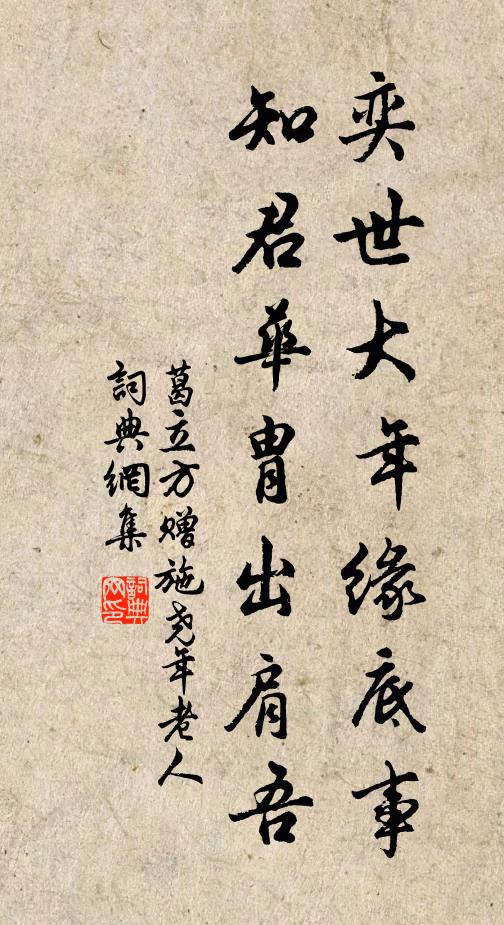 奕世大年緣底事
知君華胄出肩吾
葛立方贈施尧年老人
詞典網集
詞典